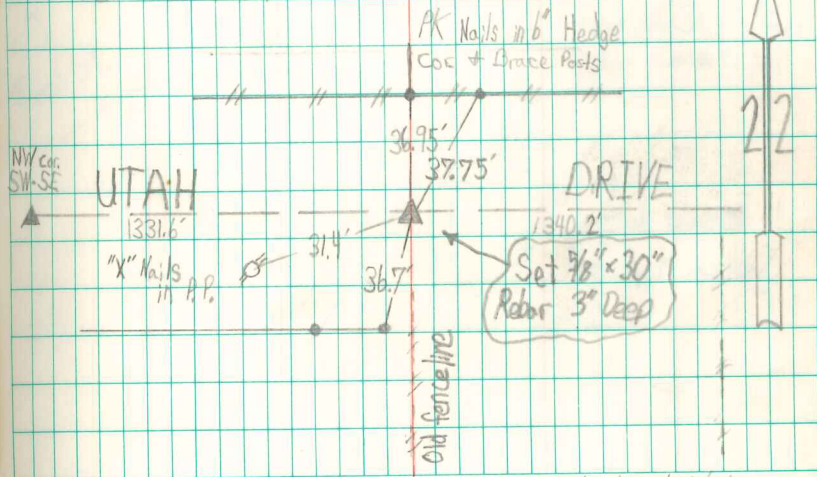 PK Nails in 6" Hedge
Cor & Brace Posts
22
36.95'
37.75'
NW cor.
SW-SE
UTAH
DRIVE
1331.6'
1340.2'
31.4'
"X" Nails
in P.P.
36.7'
Set 5/8" x 30"
Rebar 3" Deep
Old fenceline